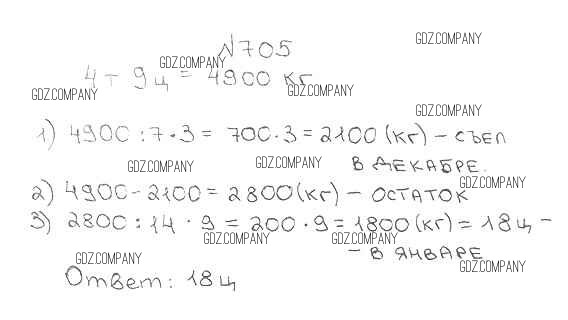 №705
GDZ.COMPANY
GDZ.COMPANY
4т 9ц = 4900 кг
GDZ.COMPANY
GDZ.COMPANY
GDZ.COMPANY
1) 4900 : 7 · 3 = 700 · 3 = 2100 (кг) – съел
в декабре.
GDZ.COMPANY
GDZ.COMPANY
GDZ.COMPANY
2) 4900 - 2100 = 2800 (кг) – остаток
3) 2800 : 14 · 9 = 200 · 9 = 1800 (кг) = 18ц –
GDZ.COMPANY
GDZ.COMPANY
– в январе
GDZ.COMPANY
GDZ.COMPANY
Ответ: 18ц